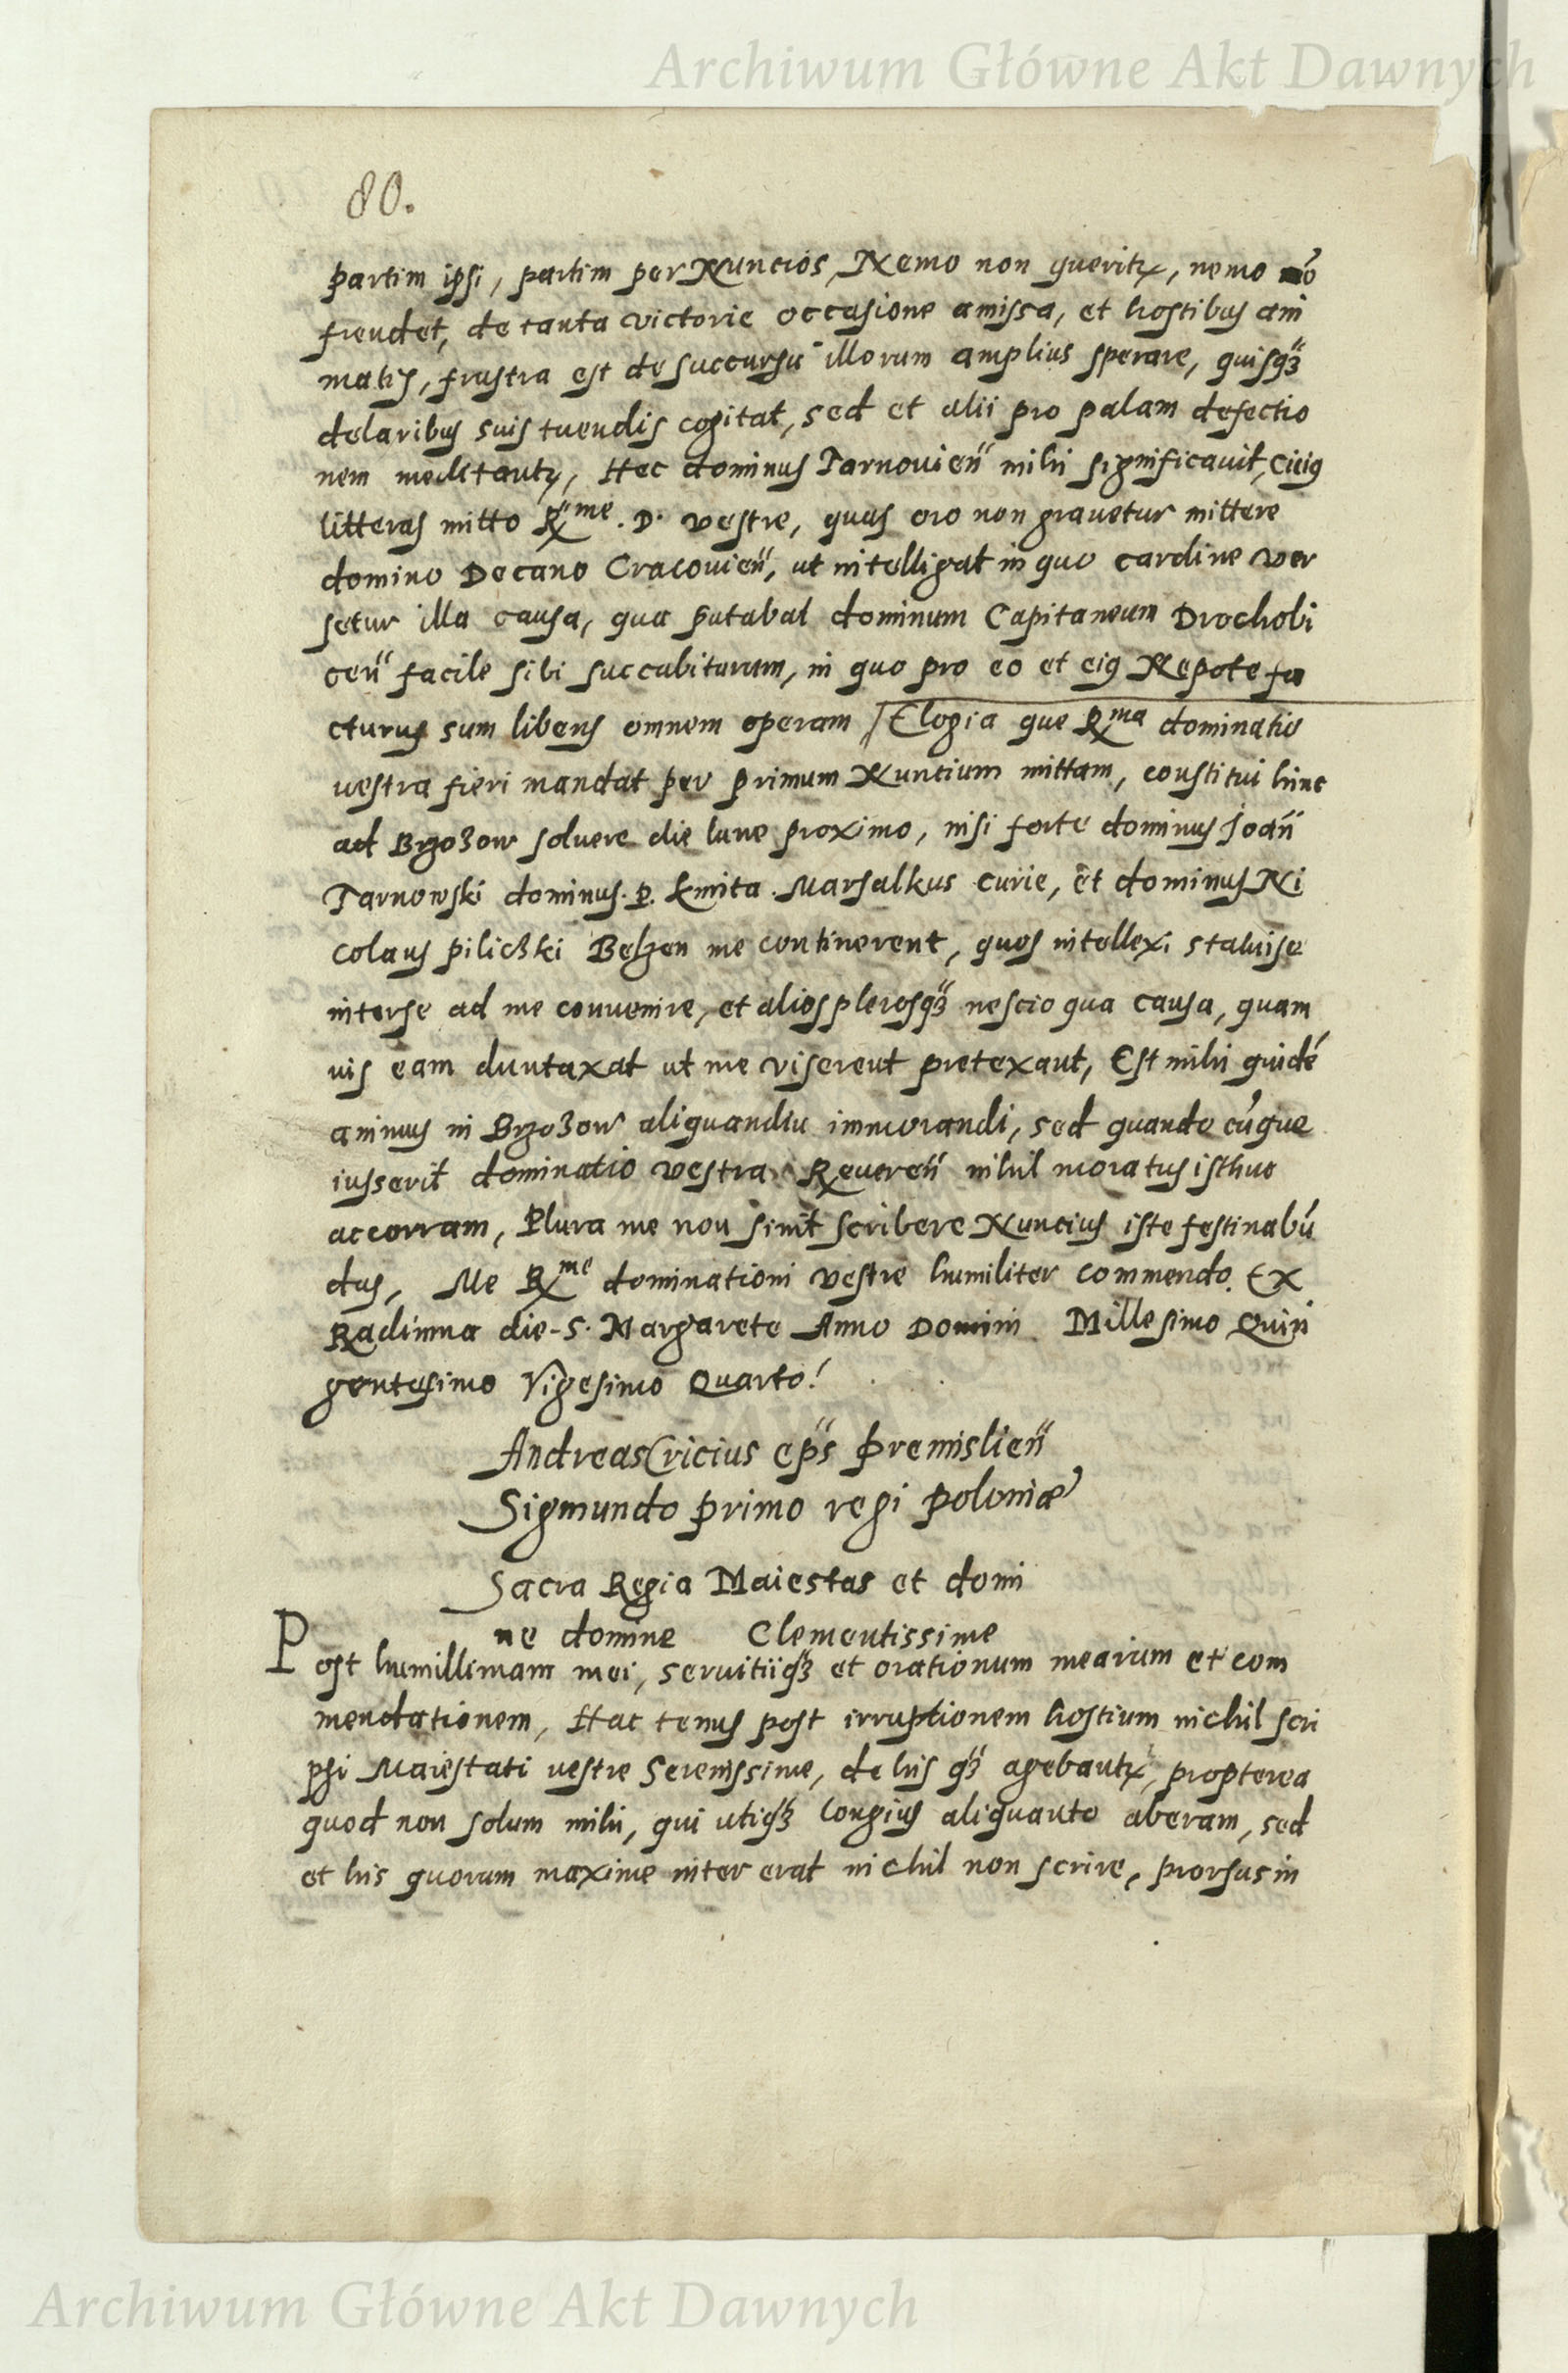 Archiwum Główne Akt Dawnych
80.
partim ipsi, partim per Nuncios, Nemo non queritꝛ, nemo nō
frendet, de tanta victorie occasione amissa, et hostibus ani
matis, frustra est de succursu illorum amplius sperare, quisqꝫ
delaribus suis tuendis cogitat, sed et alii pro palam defectio
nem meditantꝛ, Hec dominus Tarnovień mihi significavit, cuiꝰ
litteras mitto Rme. D. vestre, quas oro non gravetur mittere
domino Decano Cracovień, ut intelligat in quo cardine ver
setur illa causa, qua putabat dominum Capitaneum Drochobi
ceń facile sibi succubiturum, in quo pro eo et eiꝰ Nepote fa
cturus sum libens omnem operam / Elogia que Rma dominatio
vestra fieri mandat per primum Nuncium mittam, constitui hinc
ad Brzozow solvere die lune proximo, nisi forte dominus Joań
Tarnowski dominus. p. kmita. Marsalkus curie, et dominus Ni
colaus pilicski Belzen me continerent, quos intellexi statuise
interse ad me convenire, et alios plerosqꝫ nescio qua causa, quam
vis eam duntaxat ut me viserent pretexant, Est mihi quidē
animus in Brzozow aliquandiu immorandi, sed quando cūque
iusserit dominatio vestraÆvereń nihil moratus isthuc
accorram, Plura me non sinit scribere Nuncius iste festinabū
dus, Me Rme dominationi vestre humiliter commendo. Ex
Radimna die S. Margarete Anno Domini Millesimo Quin
gentesimo Vigesimo Quarto!
Andreas Cricius ep̄s premislień
Sigmundo primo regi poloniæ
Sacra Regia Maiestas et domi
ne domine Clementissime
Post humillimam mei, servitiiqꝫ et orationum mearum et com
mendationem, Hac tenus post irruptionem hostium nichil scri
psi Maiestati vestre Serenissime, de his qꝫ agebantꝛ, propterea
quod non solum mihi, qui utiqꝫ longius aliquanto aberam, sed
et his quorum maxime inter erat nichil non scrire, prorsus in
Archiwum Główne Akt Dawnych